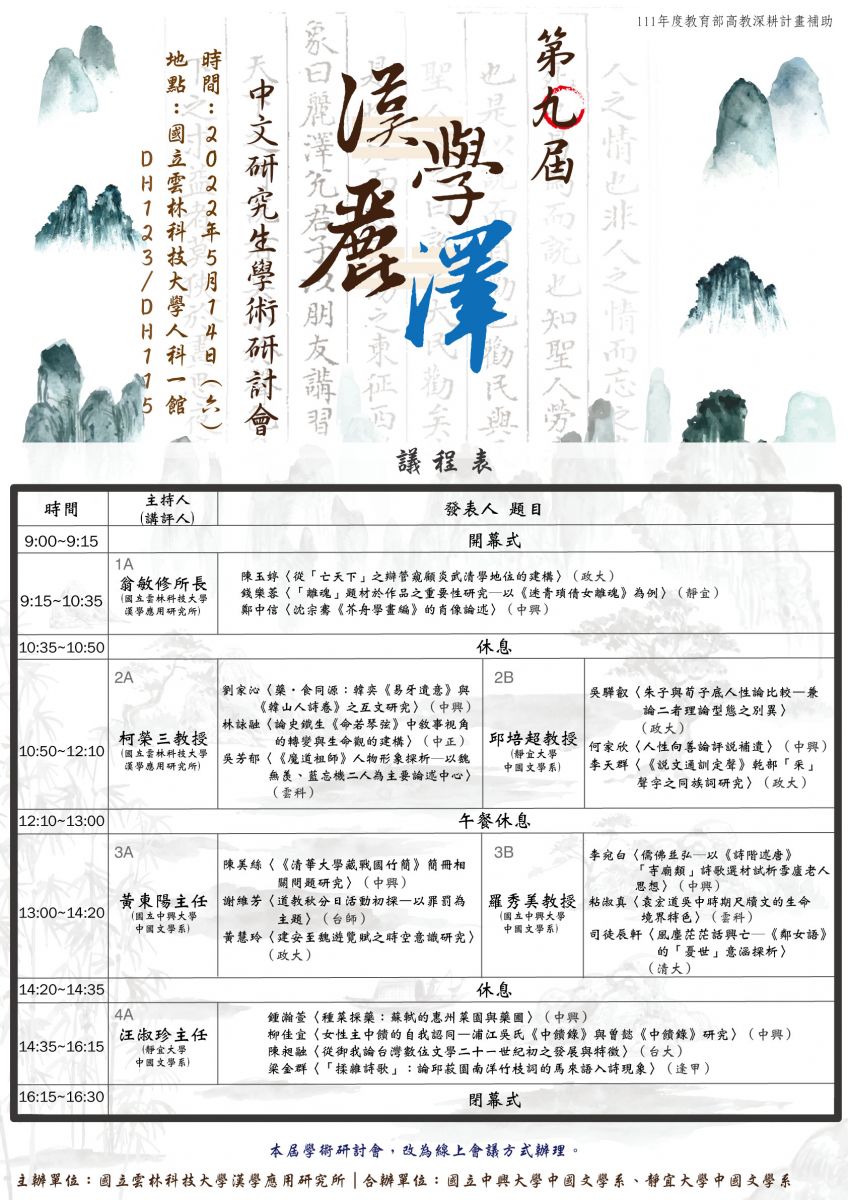 111年度教育部高教深耕計畫補助
第九屆
漢學
麗澤
中文研究生學術研討會
時間：2022年5月14日（六）
地點：國立雲林科技大學人科一館
DH123/DH115
議程表
時間
主持人
(講評人)
發表人 題目
9:00~9:15
開幕式
9:15~10:35
1A
翁敏修所長
(國立雲林科技大學
漢學應用研究所)
陳玉婷〈從「亡天下」之辯管窺顧炎武清學地位的建構〉（政大）
錢樂蓉〈「離魂」題材於作品之重要性研究─以《迷青瑣倩女離魂》為例〉（靜宜）
鄭中信〈沈宗騫《芥舟學畫編》的肖像論述〉（中興）
10:35~10:50
休息
10:50~12:10
2A
柯榮三教授
(國立雲林科技大學
漢學應用研究所)
劉家沁〈藥‧食同源：韓奕《易牙遺意》與
《韓山人詩卷》之互文研究〉（中興）
林詠融〈論史鐵生《命若琴弦》中敘事視角
的轉變與生命觀的建構〉（中正）
吳芳郁〈《魔道祖師》人物形象探析─以魏
無羨、藍忘機二人為主要論述中心〉
（雲科）
2B
邱培超教授
(靜宜大學
中國文學系)
吳驊叡〈朱子與荀子底人性論比較─兼
論二者理論型態之別異〉
（政大）
何家欣〈人性向善論評說補遺〉（中興）
李天群〈《說文通訓定聲》乾部「釆」
聲字之同族詞研究〉（政大）
12:10~13:00
午餐休息
13:00~14:20
3A
黃東陽主任
(國立中興大學
中國文學系)
陳美絲〈《清華大學藏戰國竹簡》簡冊相
關問題研究〉（中興）
謝維芳〈道教秋分日活動初探─以罪罰為
主題〉（台師）
黃慧玲〈建安至魏遊覽賦之時空意識研究〉
（政大）
3B
羅秀美教授
(國立中興大學
中國文學系)
李宛白〈儒佛並弘─以《詩階述唐》
「寺廟類」詩歌選材試析雪廬老人
思想〉（中興）
粘淑真〈袁宏道吳中時期尺牘文的生命
境界特色〉（雲科）
司徒辰軒〈風塵茫茫話興亡─《鄰女語》
的「憂世」意涵探析〉
（清大）
14:20~14:35
休息
14:35~16:15
4A
汪淑珍主任
(靜宜大學
中國文學系)
鍾瀚萱〈種菜採藥：蘇軾的惠州菜園與藥圃〉（中興）
柳佳宜〈女性主中饋的自我認同─浦江吳氏《中饋錄》與曾懿《中饋錄》研究〉（中興）
陳昶融〈從御我論台灣數位文學二十一世紀初之發展與特徵〉（台大）
梁金群〈「揉雜詩歌」：論邱菽園南洋竹枝詞的馬來語入詩現象〉（逢甲）
16:15~16:30
閉幕式
本屆學術研討會，改為線上會議方式辦理。
主辦單位：國立雲林科技大學漢學應用研究所｜合辦單位：國立中興大學中國文學系、靜宜大學中國文學系